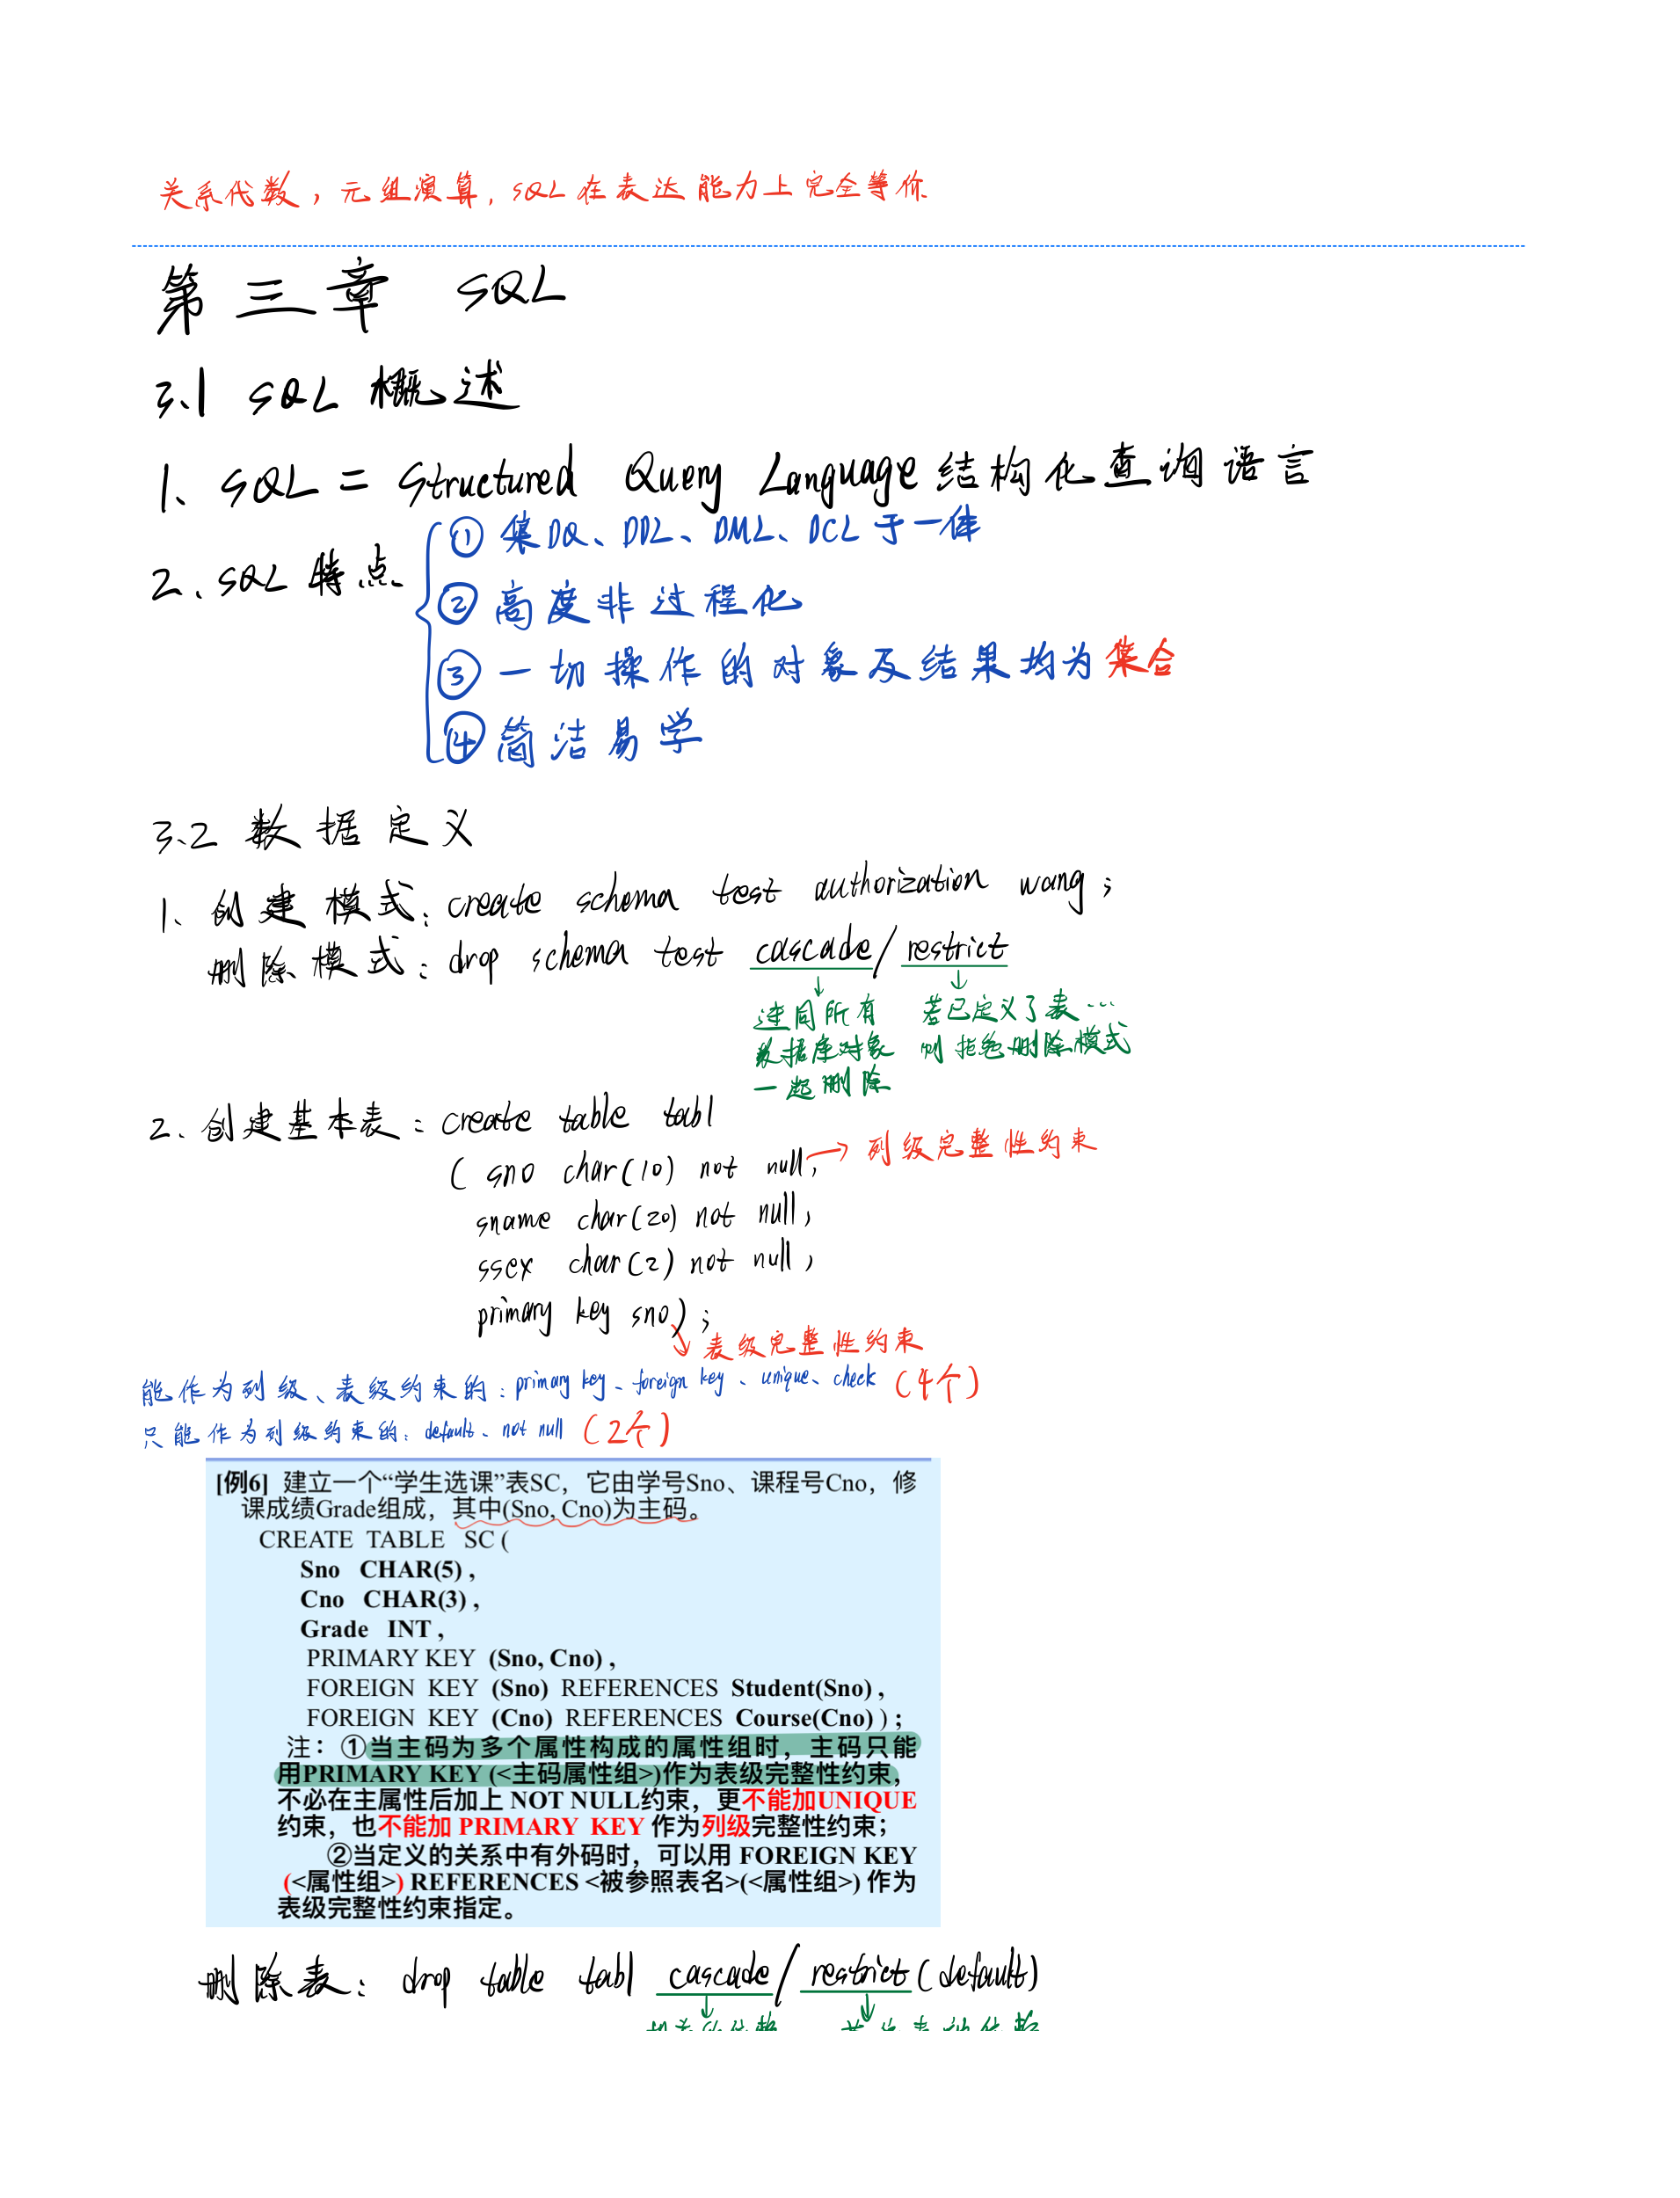 关系代数，元组演算，SQL在表达能力上完全等价
第三章 SQL
3.1 SQL 概述
1、SQL = Structured Query Language 结构化查询语言
2、SQL特点
① 集DQ、DDL、DML、DCL于一体
② 高度非过程化
③ 一切操作的对象及结果均为集合
④ 简洁易学
3.2 数据定义
1、创建模式：create schema test authorization wang；
删除模式：drop schema test cascade / restrict
↓ ↓
连同所有 若已定义了表…
数据库对象 则拒绝删除模式
一起删除
2、创建基本表：create table tab1
( sno char(10) not null, → 列级完整性约束
sname char(20) not null,
ssex char(2) not null,
primary key sno)；
↘ 表级完整性约束
能作为列级、表级约束的：primary key、foreign key、unique、check (4个)
只能作为列级约束的：default、not null (2个)
[例6] 建立一个“学生选课”表SC，它由学号Sno、课程号Cno，修
课成绩Grade组成，其中(Sno, Cno)为主码。
CREATE TABLE SC (
Sno CHAR(5) ,
Cno CHAR(3) ,
Grade INT ,
PRIMARY KEY (Sno, Cno) ,
FOREIGN KEY (Sno) REFERENCES Student(Sno) ,
FOREIGN KEY (Cno) REFERENCES Course(Cno) ) ;
注：①当主码为多个属性构成的属性组时，主码只能
用PRIMARY KEY (<主码属性组>)作为表级完整性约束，
不必在主属性后加上 NOT NULL约束，更不能加UNIQUE
约束，也不能加 PRIMARY KEY 作为列级完整性约束；
②当定义的关系中有外码时，可以用 FOREIGN KEY
(<属性组>) REFERENCES <被参照表名>(<属性组>) 作为
表级完整性约束指定。
删除表：drop table tab1 cascade / restrict (default)
↓ ↓